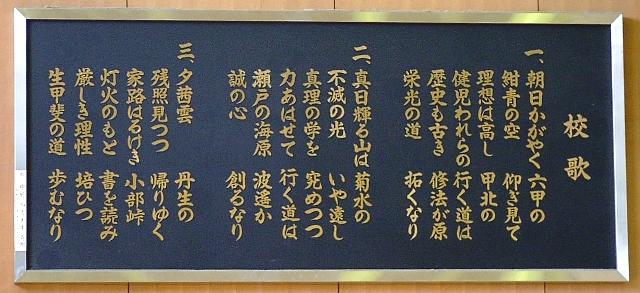 校歌
一、朝日かがやく 六甲の
紺青の空 仰ぎ見て
理想は高し 甲北の
健児われらの 行く道は
歴史も古き 修法が原
栄光の道 拓くなり
二、真日輝る山は 菊水の
不滅の光 いや遠し
真理の学を 究めつつ
力あはせて 行く道は
瀬戸の海原 波遙か
誠の心 創るなり
三、夕茜雲 丹生の
残照見つつ 帰りゆく
家路はるけき 小部峠
灯火のもと 書を読み
厳しき理性 培ひつ
生甲斐の道 歩むなり